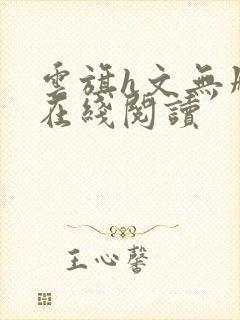 雲旗h文無
在綫閱讀
王心馨